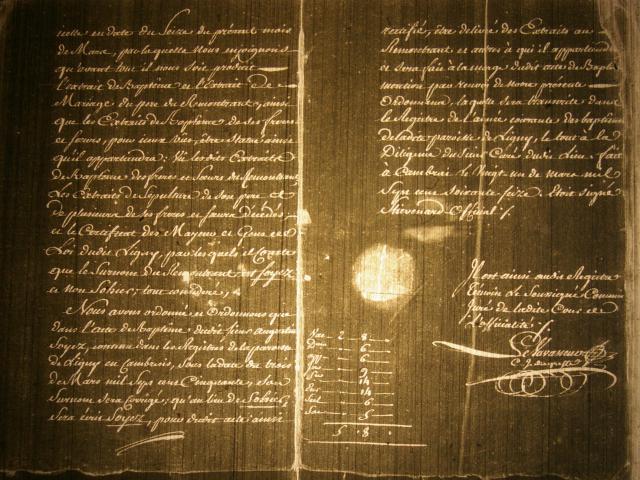 notte en datte du Seize du présent mois
de Mars, par laquelle nous enjoignons
qu'avant tout il nous soit produit
l'extrait de Baptême et l'Extrait De
Mariage du pere du Remontrant, ainsi
que les Extraits de Baptême de ses freres
et soeurs, pour ceux vûs, être statué ainsi
qu'il appartiendra; Vu lesdits Extraits
de Baptême des freres et Soeurs du Remontrant,
Les Extraits de sepulture de son pere et
de plusieurs de ses freres et soeurs Décédés
et le Certificat des Mayeur et Gens de
Loi dudit Ligny, par lesquels il Conste
que le Surnom du Remontrant est Soyez
et non Sobiez; tout considéré,
Nous avons ordonné et Ordonnons que
dans l'Acte de Baptême dudit sieur augustin
Soyez, contenu dans les Registres de la paroisse
de Ligny en Cambresis, sous la datte du trois
de Mars mil Sept cent Cinquante, son
Surnom sera Corrigé; qu'au lieu de Sobiez,
Sera écrit Soyez, pour dudit acte ainsi
rectifié, être delivré des Extraits au
Remontrant et autres à qui il appartiendra
et sera faite à la marge dudit acte de Baptême
mention par renvoi de notre presente
Ordonnance, laquelle sera transcrite dans
le Registre de l'année courante des baptêmes
de ladite paroisse de Ligny, le tout à la
Diligence du Sieur Curé dudit Lieu. fait
à Cambrai le Vingt un de mars mil
Sept cent soixante seize. Etoit signé
Official
Plort ainsi audit Registre
Témoin le Soussigné Commis
Juré de ladite Cour et
l'officialité
2 8
6
6
9
14
14
6
5
5 8